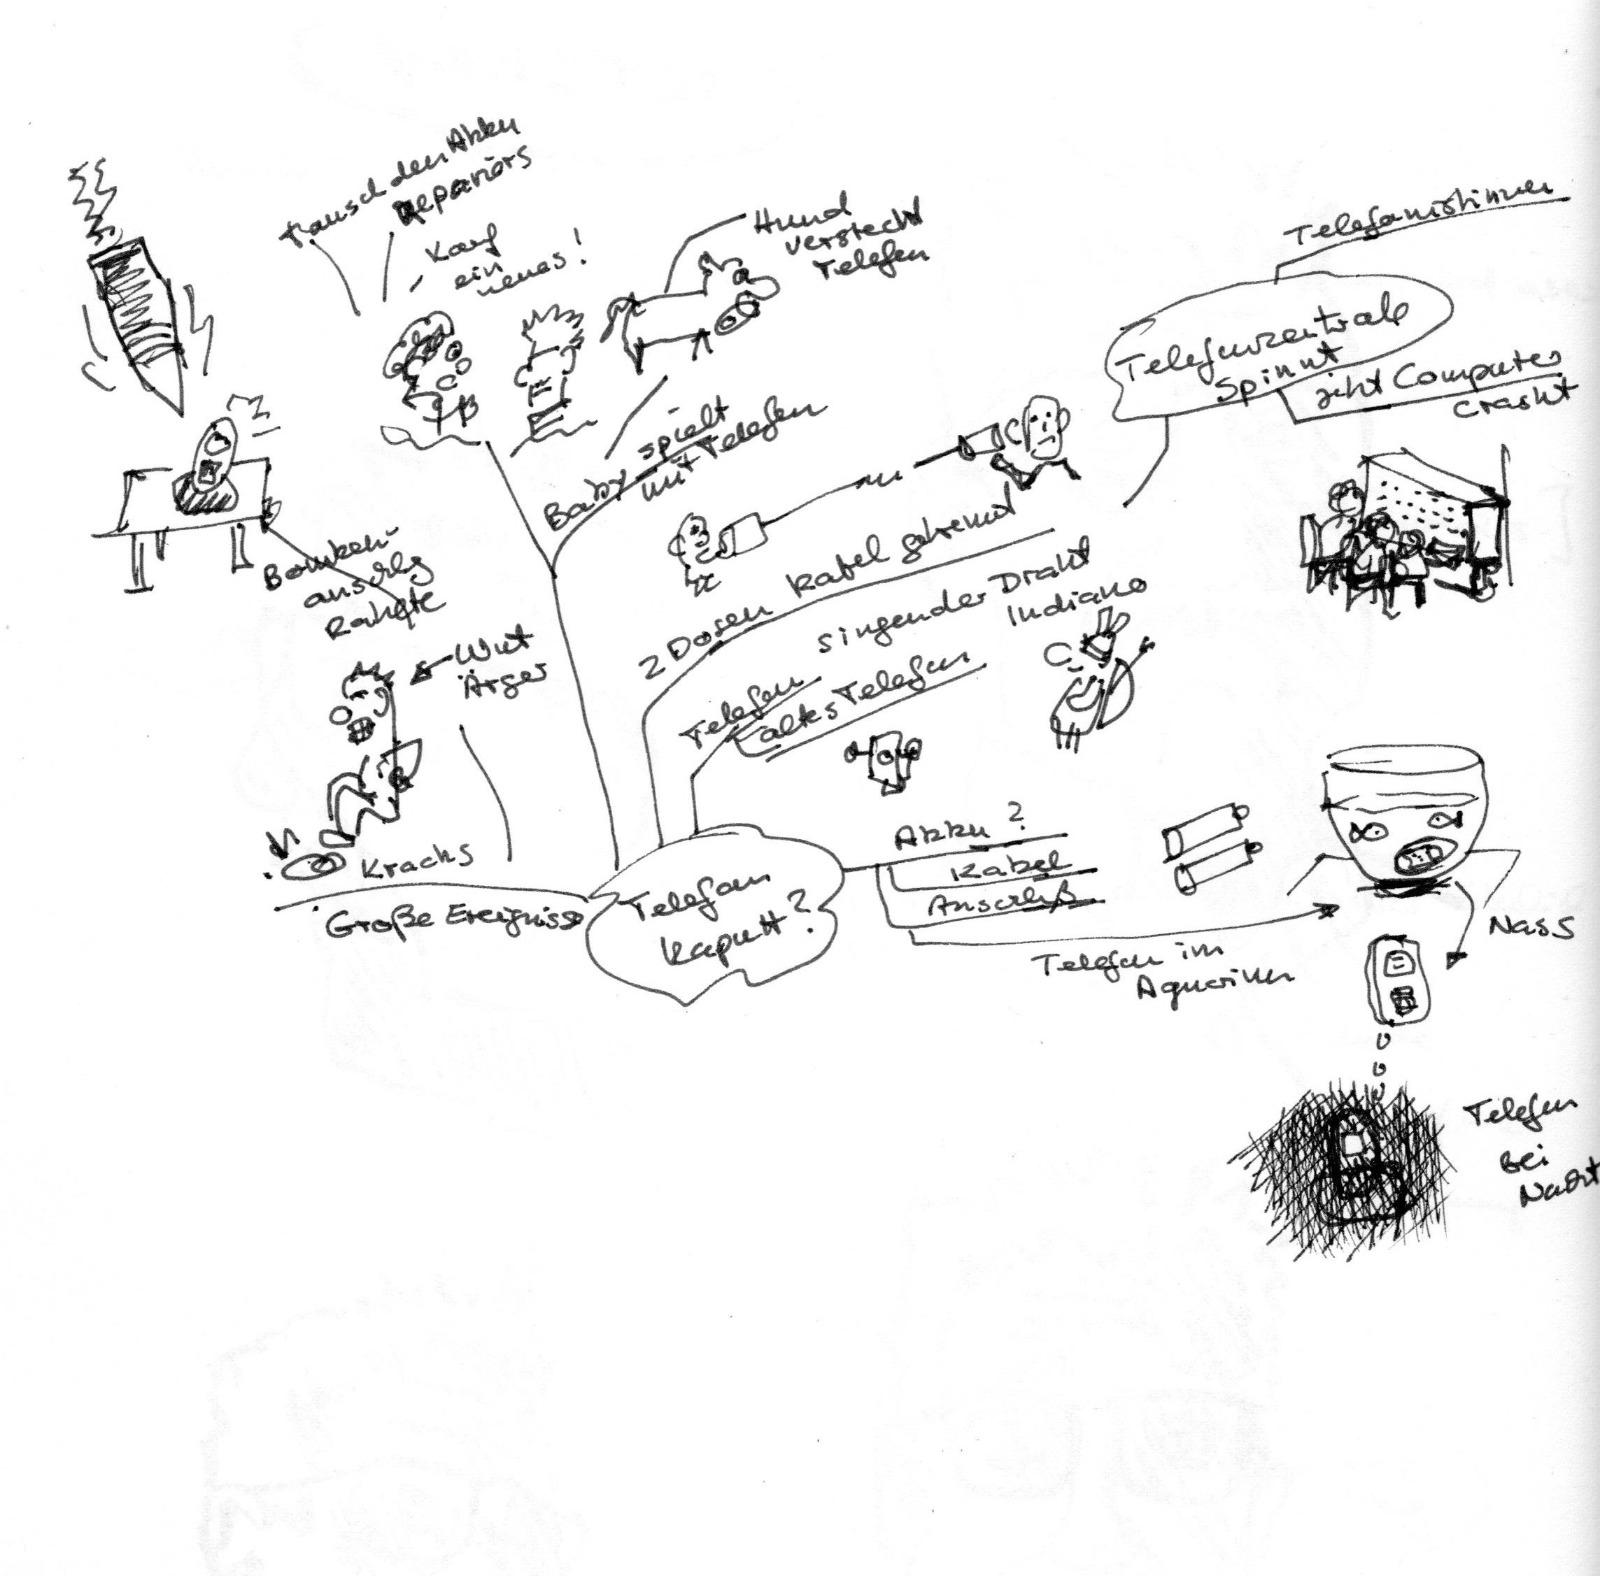 tausch den Akku
Repariers
Kauf
ein
neues!
Hund
versteckt
Telefon
Telefonistinnen
Telefonzentrale
spinnt
Computer
crasht
Baby spielt
mit Telefon
2 Dosen Kabel getrennt
singender Draht
Indianer
Telefon
altes Telefon
Bomben-
anschlag
Rakete
Wut
Ärger
Krachs
Große Ereignisse
Telefon
kaputt?
Akku?
Kabel
Anschluß
Telefon im
Aquarium
Nass
Telefon
bei
Nacht